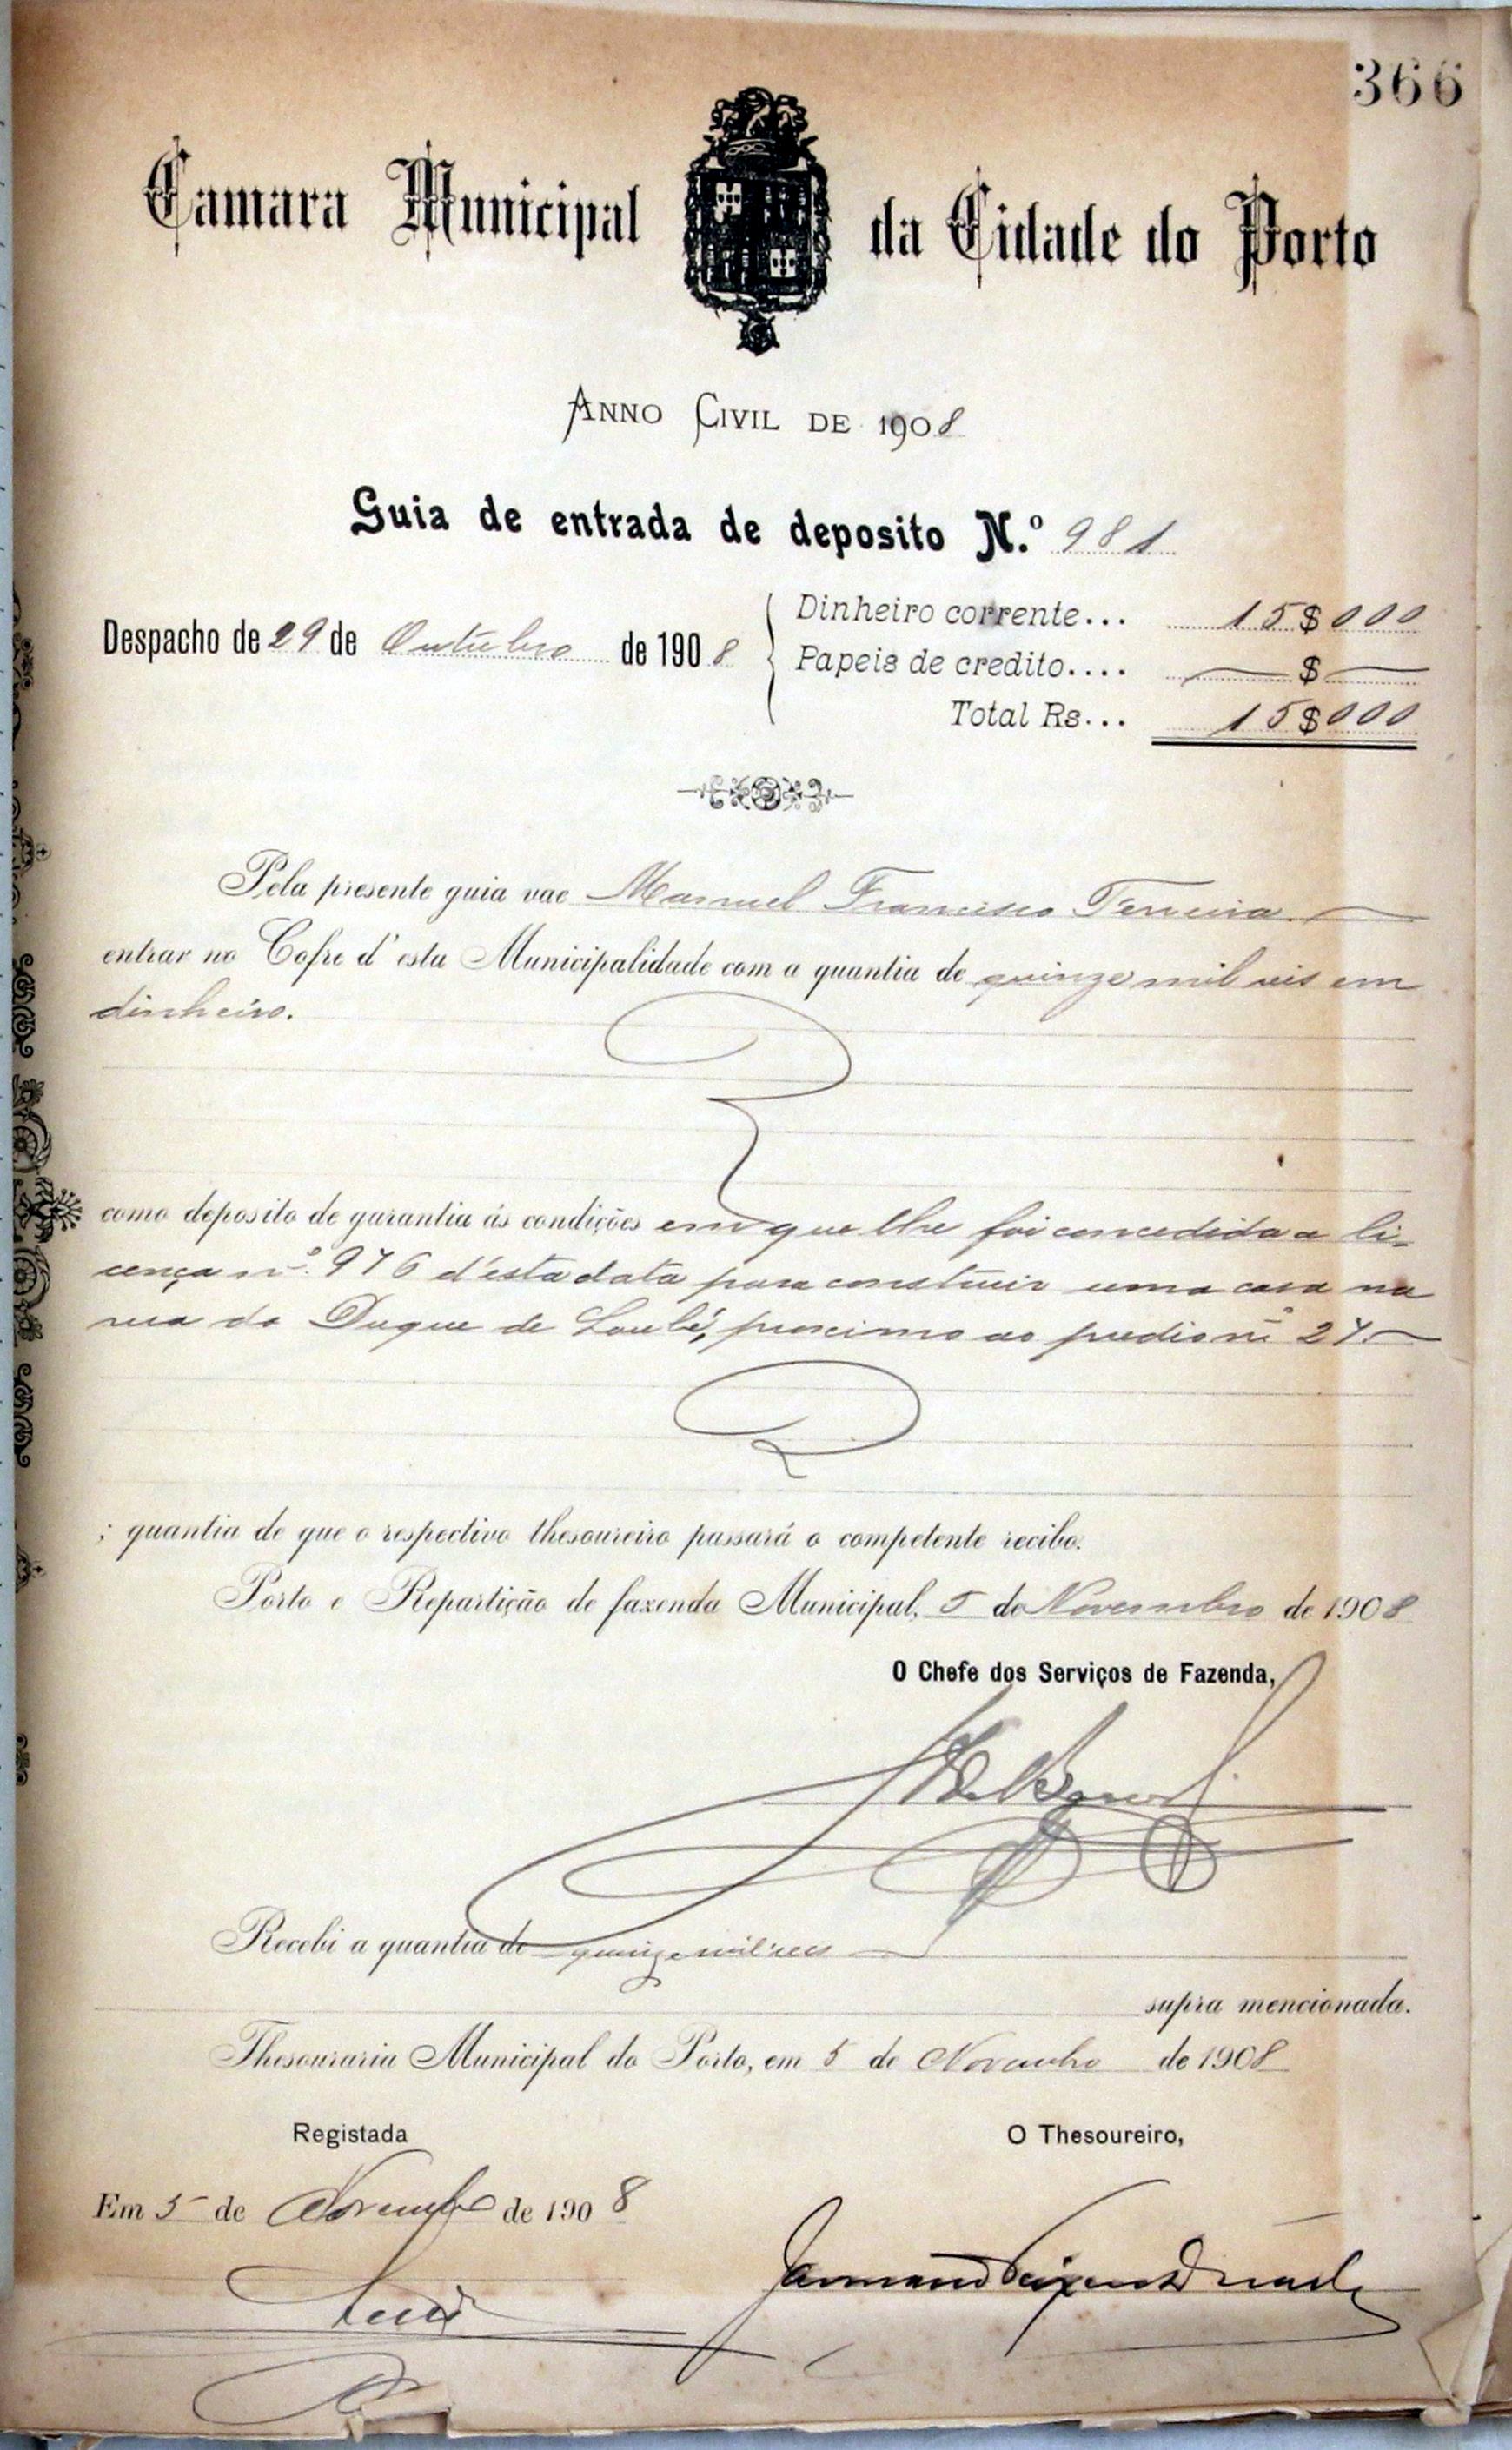 366
Camara Municipal da Cidade do Porto
Anno Civil de 1908
Guia de entrada de deposito N.º 981
Despacho de 29 de Outubro de 1908
Dinheiro corrente... 15$000
Papeis de credito.... $
Total Rs... 15$000
Pela presente guia vae Manuel Francisco Ferreira.
entrar no Cofre d'esta Municipalidade com a quantia de quinze mil reis em
dinheiro.
como deposito de garantia ás condições em que lhe foi concedida a li-
cença nº. 976 d'esta data para construir uma casa na
rua do Duque de Loulé, proximo ao predio nº 27.
; quantia de que o respectivo thesoureiro passará o competente recibo.
Porto e Repartição de fazenda Municipal, 5 de Novembro de 1908
O Chefe dos Serviços de Fazenda,
Recebi a quantia de quinze mil reis
supra mencionada.
Thesouraria Municipal do Porto, em 5 de Novembro de 1908
Registada
O Thesoureiro,
Em 5 de Novembro de 1908